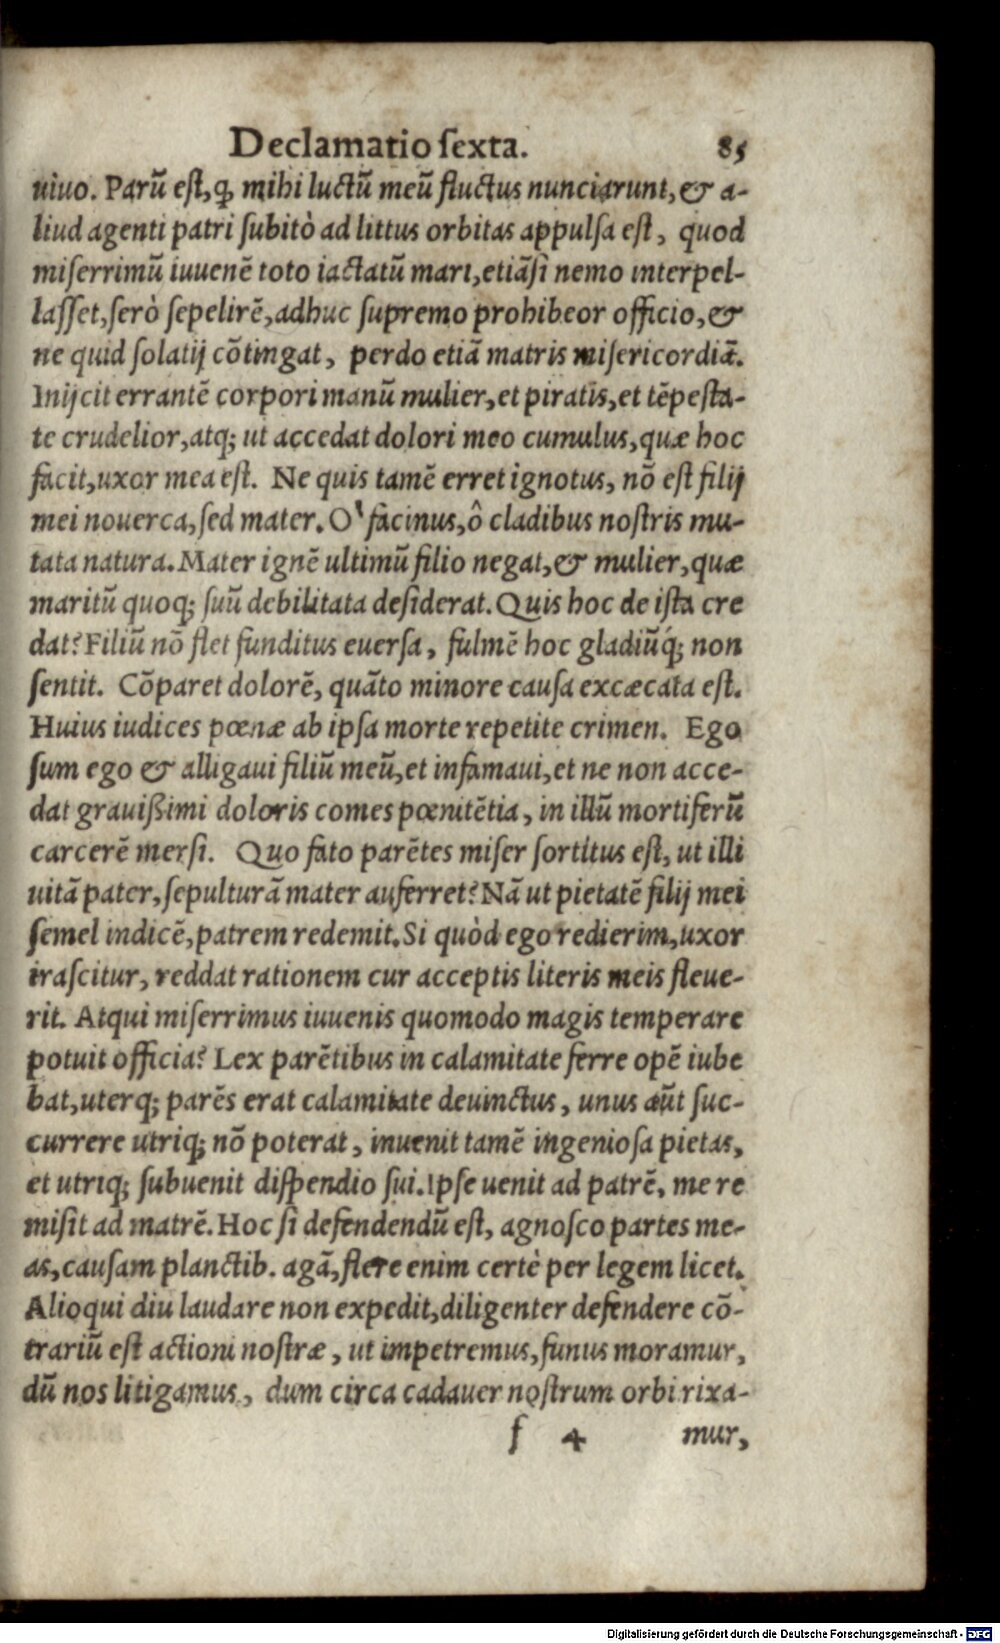 Declamatio ſexta. 85
uiuo. Parū eſt, ꝙ mihi luctū meū fluctus nunciarunt, & a-
liud agenti patri ſubitò ad littus orbitas appulſa eſt, quod
miſerrimū iuuenē toto iactatū mari, etiāſi nemo interpel-
laſſet, ſerò ſepelirē, adhuc ſupremo prohibeor officio, &
ne quid ſolatij cōtingat, perdo etiā matris miſericordiā.
Inijcit errantē corpori manū mulier, et piratis, et tēpeſta-
te crudelior, atq; ut accedat dolori meo cumulus, quæ hoc
facit, uxor mea eſt. Ne quis tamē erret ignotus, nō eſt filij
mei nouerca, ſed mater. O' facinus, ô cladibus noſtris mu-
tata natura. Mater ignē ultimū filio negat, & mulier, quæ
maritū quoq; ſuū debilitata deſiderat. Quis hoc de iſta cre
dat? Filiū nō flet funditus euerſa, fulmē hoc gladiūq́; non
ſentit. Cōparet dolorē, quāto minore cauſa excæcata eſt.
Huius iudices pœnæ ab ipſa morte repetite crimen. Ego
ſum ego & alligaui filiū meū, et infamaui, et ne non acce-
dat grauißimi doloris comes pœnitētia, in illū mortiferū
carcerē merſi. Quo fato parētes miſer ſortitus eſt, ut illi
uitā pater, ſepulturā mater auferret? Nā ut pietatē filij mei
ſemel indicē, patrem redemit. Si quòd ego redierim, uxor
iraſcitur, reddat rationem cur acceptis literis meis fleue-
rit. Atqui miſerrimus iuuenis quomodo magis temperare
potuit officia? Lex parētibus in calamitate ferre opē iube
bat, uterq; parēs erat calamitate deuinctus, unus aūt ſuc-
currere utriq; nō poterat, inuenit tamē ingenioſa pietas,
et utriq; ſubuenit diſpendio ſui. Ipſe uenit ad patrē, me re
miſit ad matrē. Hoc ſi defendendū eſt, agnoſco partes me-
as, cauſam planctib. agā, flere enim certè per legem licet.
Alioqui diu laudare non expedit, diligenter defendere cō-
trariū eſt actioni noſtræ, ut impetremus, funus moramur,
dū nos litigamus, dum circa cadauer noſtrum orbi rixa-
f 4 mur,
Digitalisierung gefördert durch die Deutsche Forschungsgemeinschaft - DFG